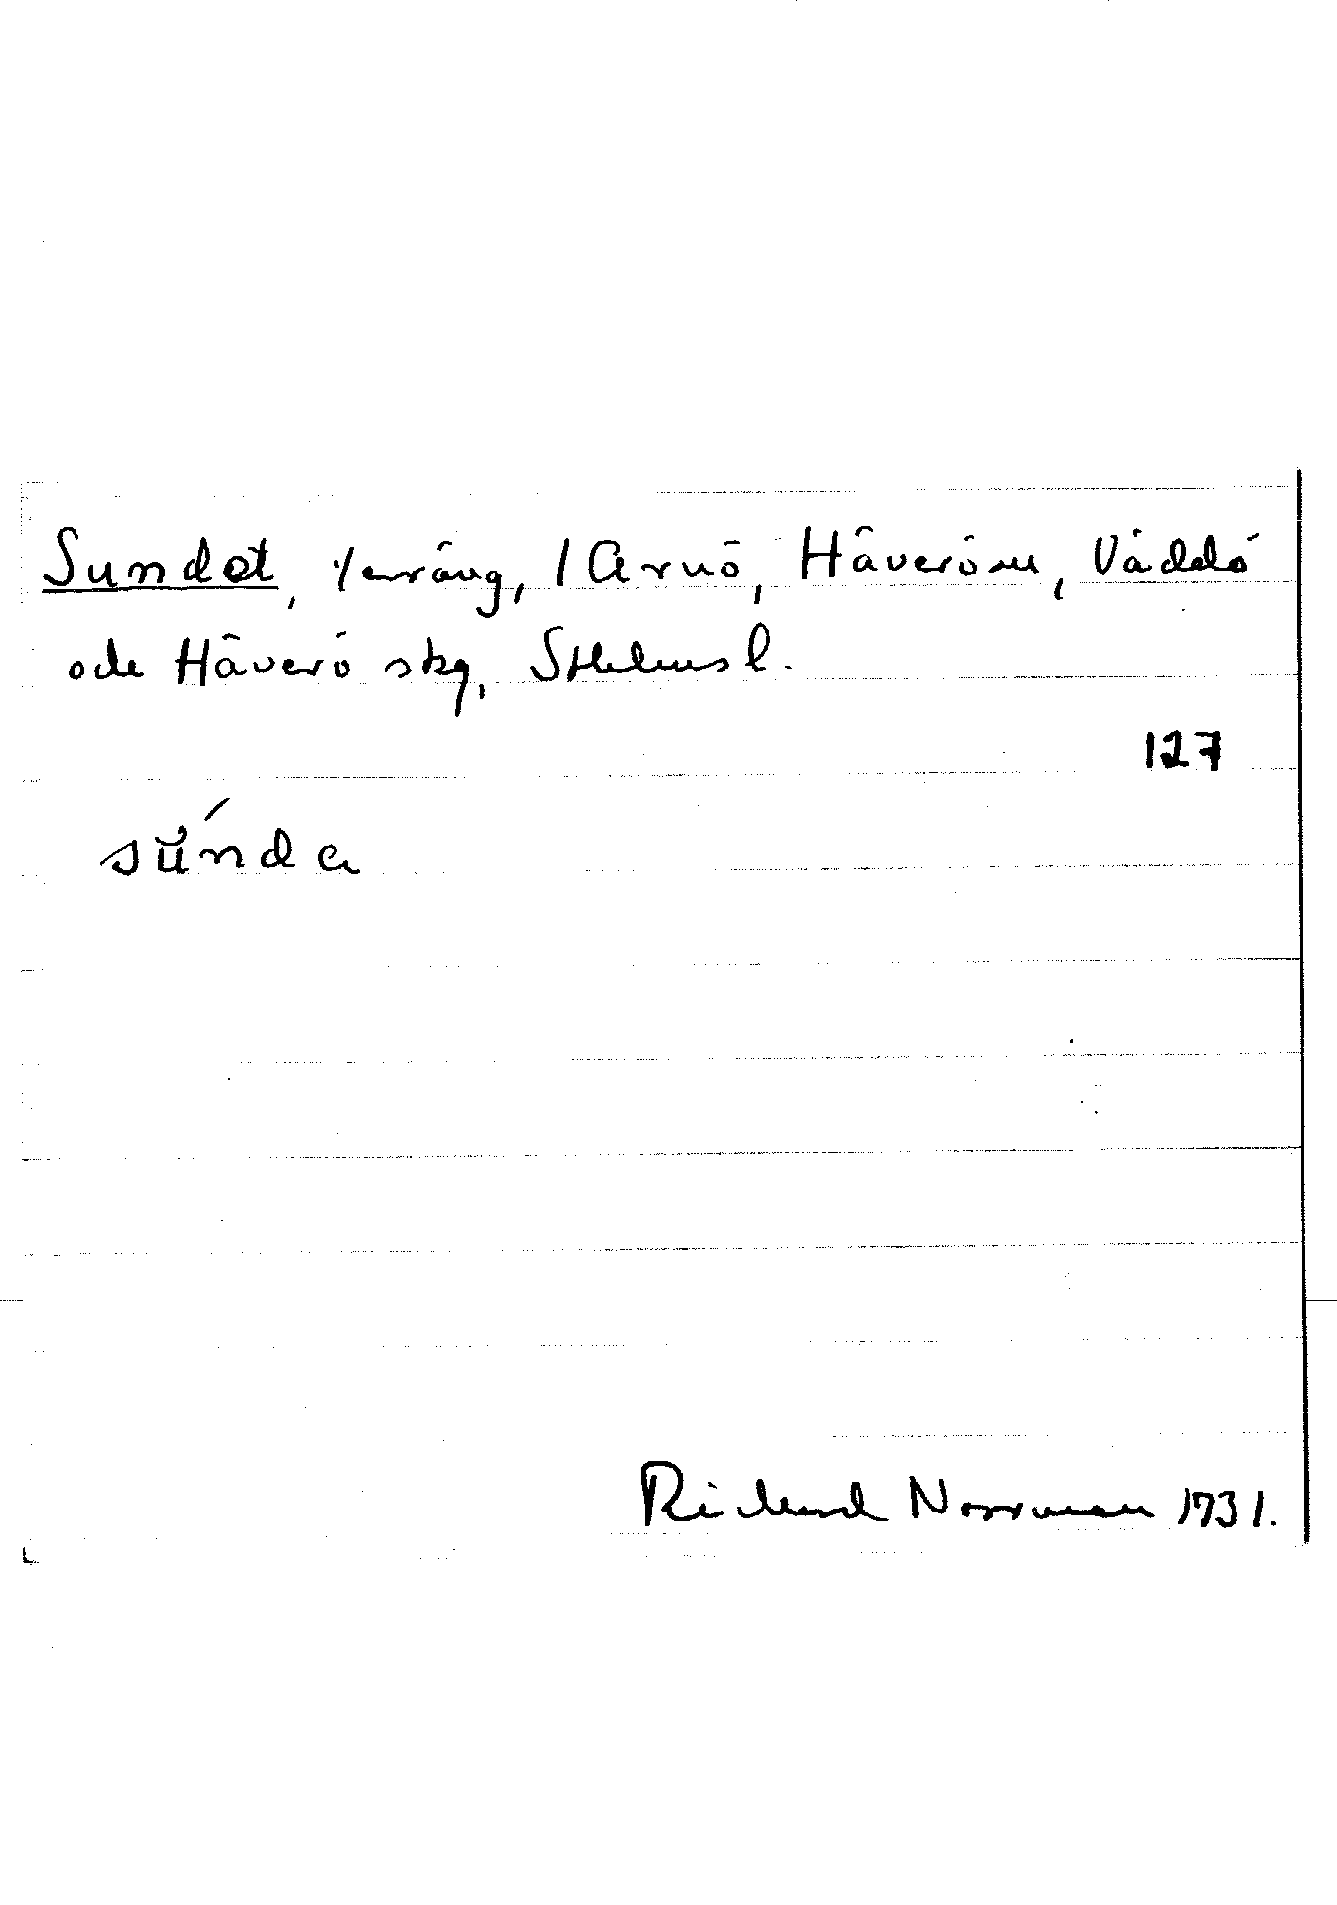 Sundet, terräng, / Arnö, Häverö sn, Väddö
och Häverö skg, Sthlms l.
127
súnda
Richard Norrman 1931.